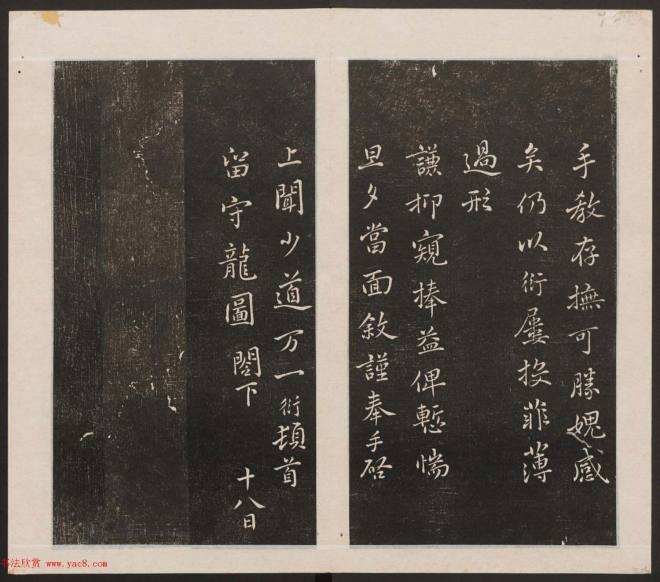 手教存撫可勝媿感
矣仍以衍屢投菲薄
過形
謙抑窺捧益俾慙惴
旦夕當面敘謹奉手啓
上聞少道万一衍頓首
留守龍圖閣下 十八日
书法欣赏 www.yac8.com